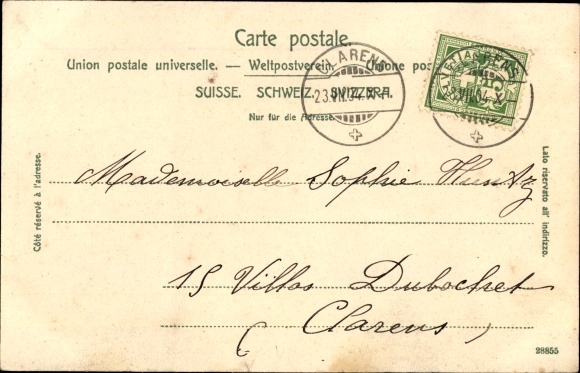 Carte postale.
Union postale universelle. — Weltpostverein.
SUISSE. SCHWEIZ. SVIZZERA.
Nur für die Adresse.
CLARENS
23.VII.04.X-
CLARENS
VII.04.X-
Côté réservé à l'adresse.
Lato riservato all' indirizzo.
Mademoiselle Sophie
15 Villas Dubochet
Clarens
28855